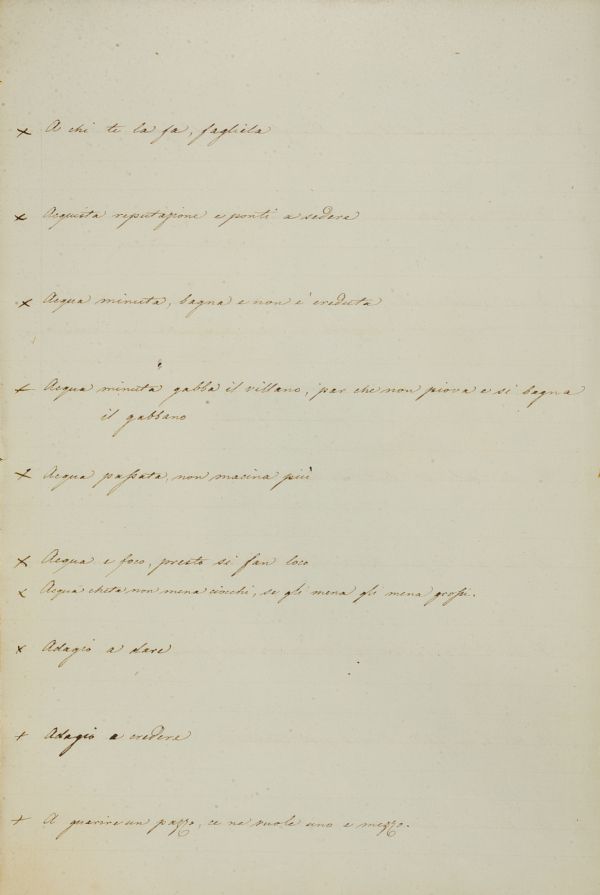 × A chi te la fa, fagliela
× Acquista reputazione e ponti a sedere
× Acqua minuta, bagna e non è creduta
× Acqua minuta gabba il villano, par che non piova e si bagna
il gabbano
× Acqua passata, non macina più
× Acqua e foco, presto si fan loco
× Acqua cheta non mena ciocchi, se gli mena gli mena grossi.
× Adagio a dare
+ Adagio a credere
+ A guarire un pazzo, ce ne vuole uno e mezzo.